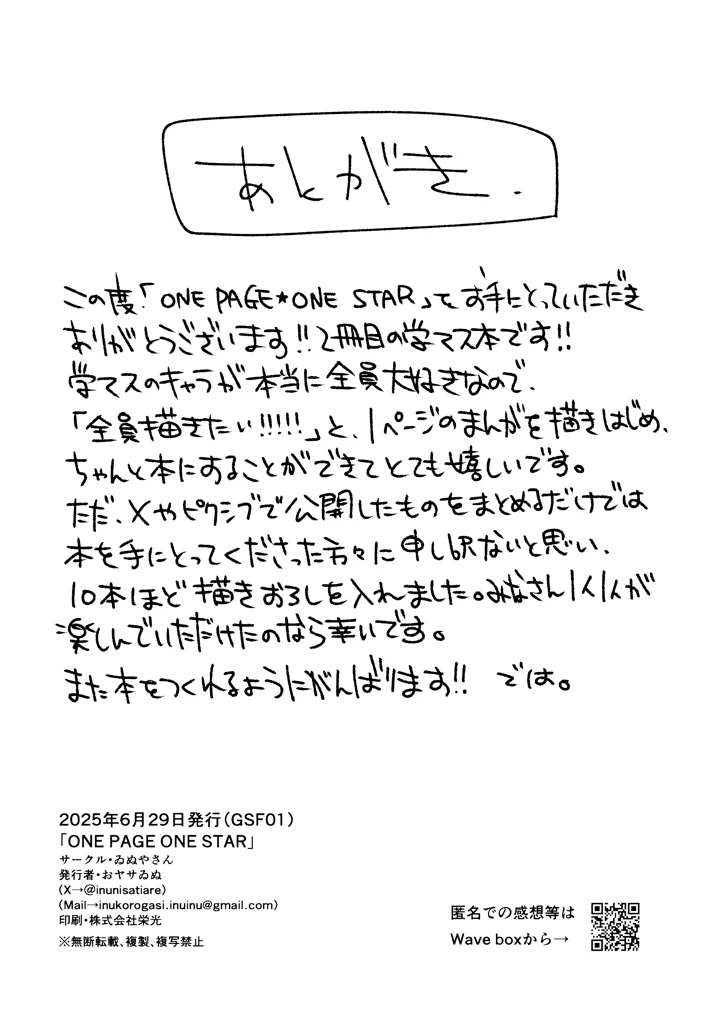 あとがき.
この度「ONE PAGE★ONE STAR」をお手にとっていただき
ありがとうございます!!2冊目の学マス本です!!
学マスのキャラが本当に全員大好きなので、
「全員描きたい!!!!!」と、1ページのまんがを描きはじめ、
ちゃんと本にすることができてとても嬉しいです。
ただ、Xやピクシブで公開したものをまとめるだけでは
本を手にとってくださった方々に申し訳ないと思い、
10本ほど描きおろしを入れました。みなさん1人1人が
楽しんでいただけたのなら幸いです。
また本をつくれるようにがんばります!! では。
2025年6月29日発行(GSF01)
「ONE PAGE ONE STAR」
サークル・ゐぬやさん
発行者・おヤサゐぬ
(X→@inunisatiare)
(Mail→inukorogasi.inuinu@gmail.com)
印刷・株式会社栄光
※無断転載、複製、複写禁止
匿名での感想等は
Wave boxから→